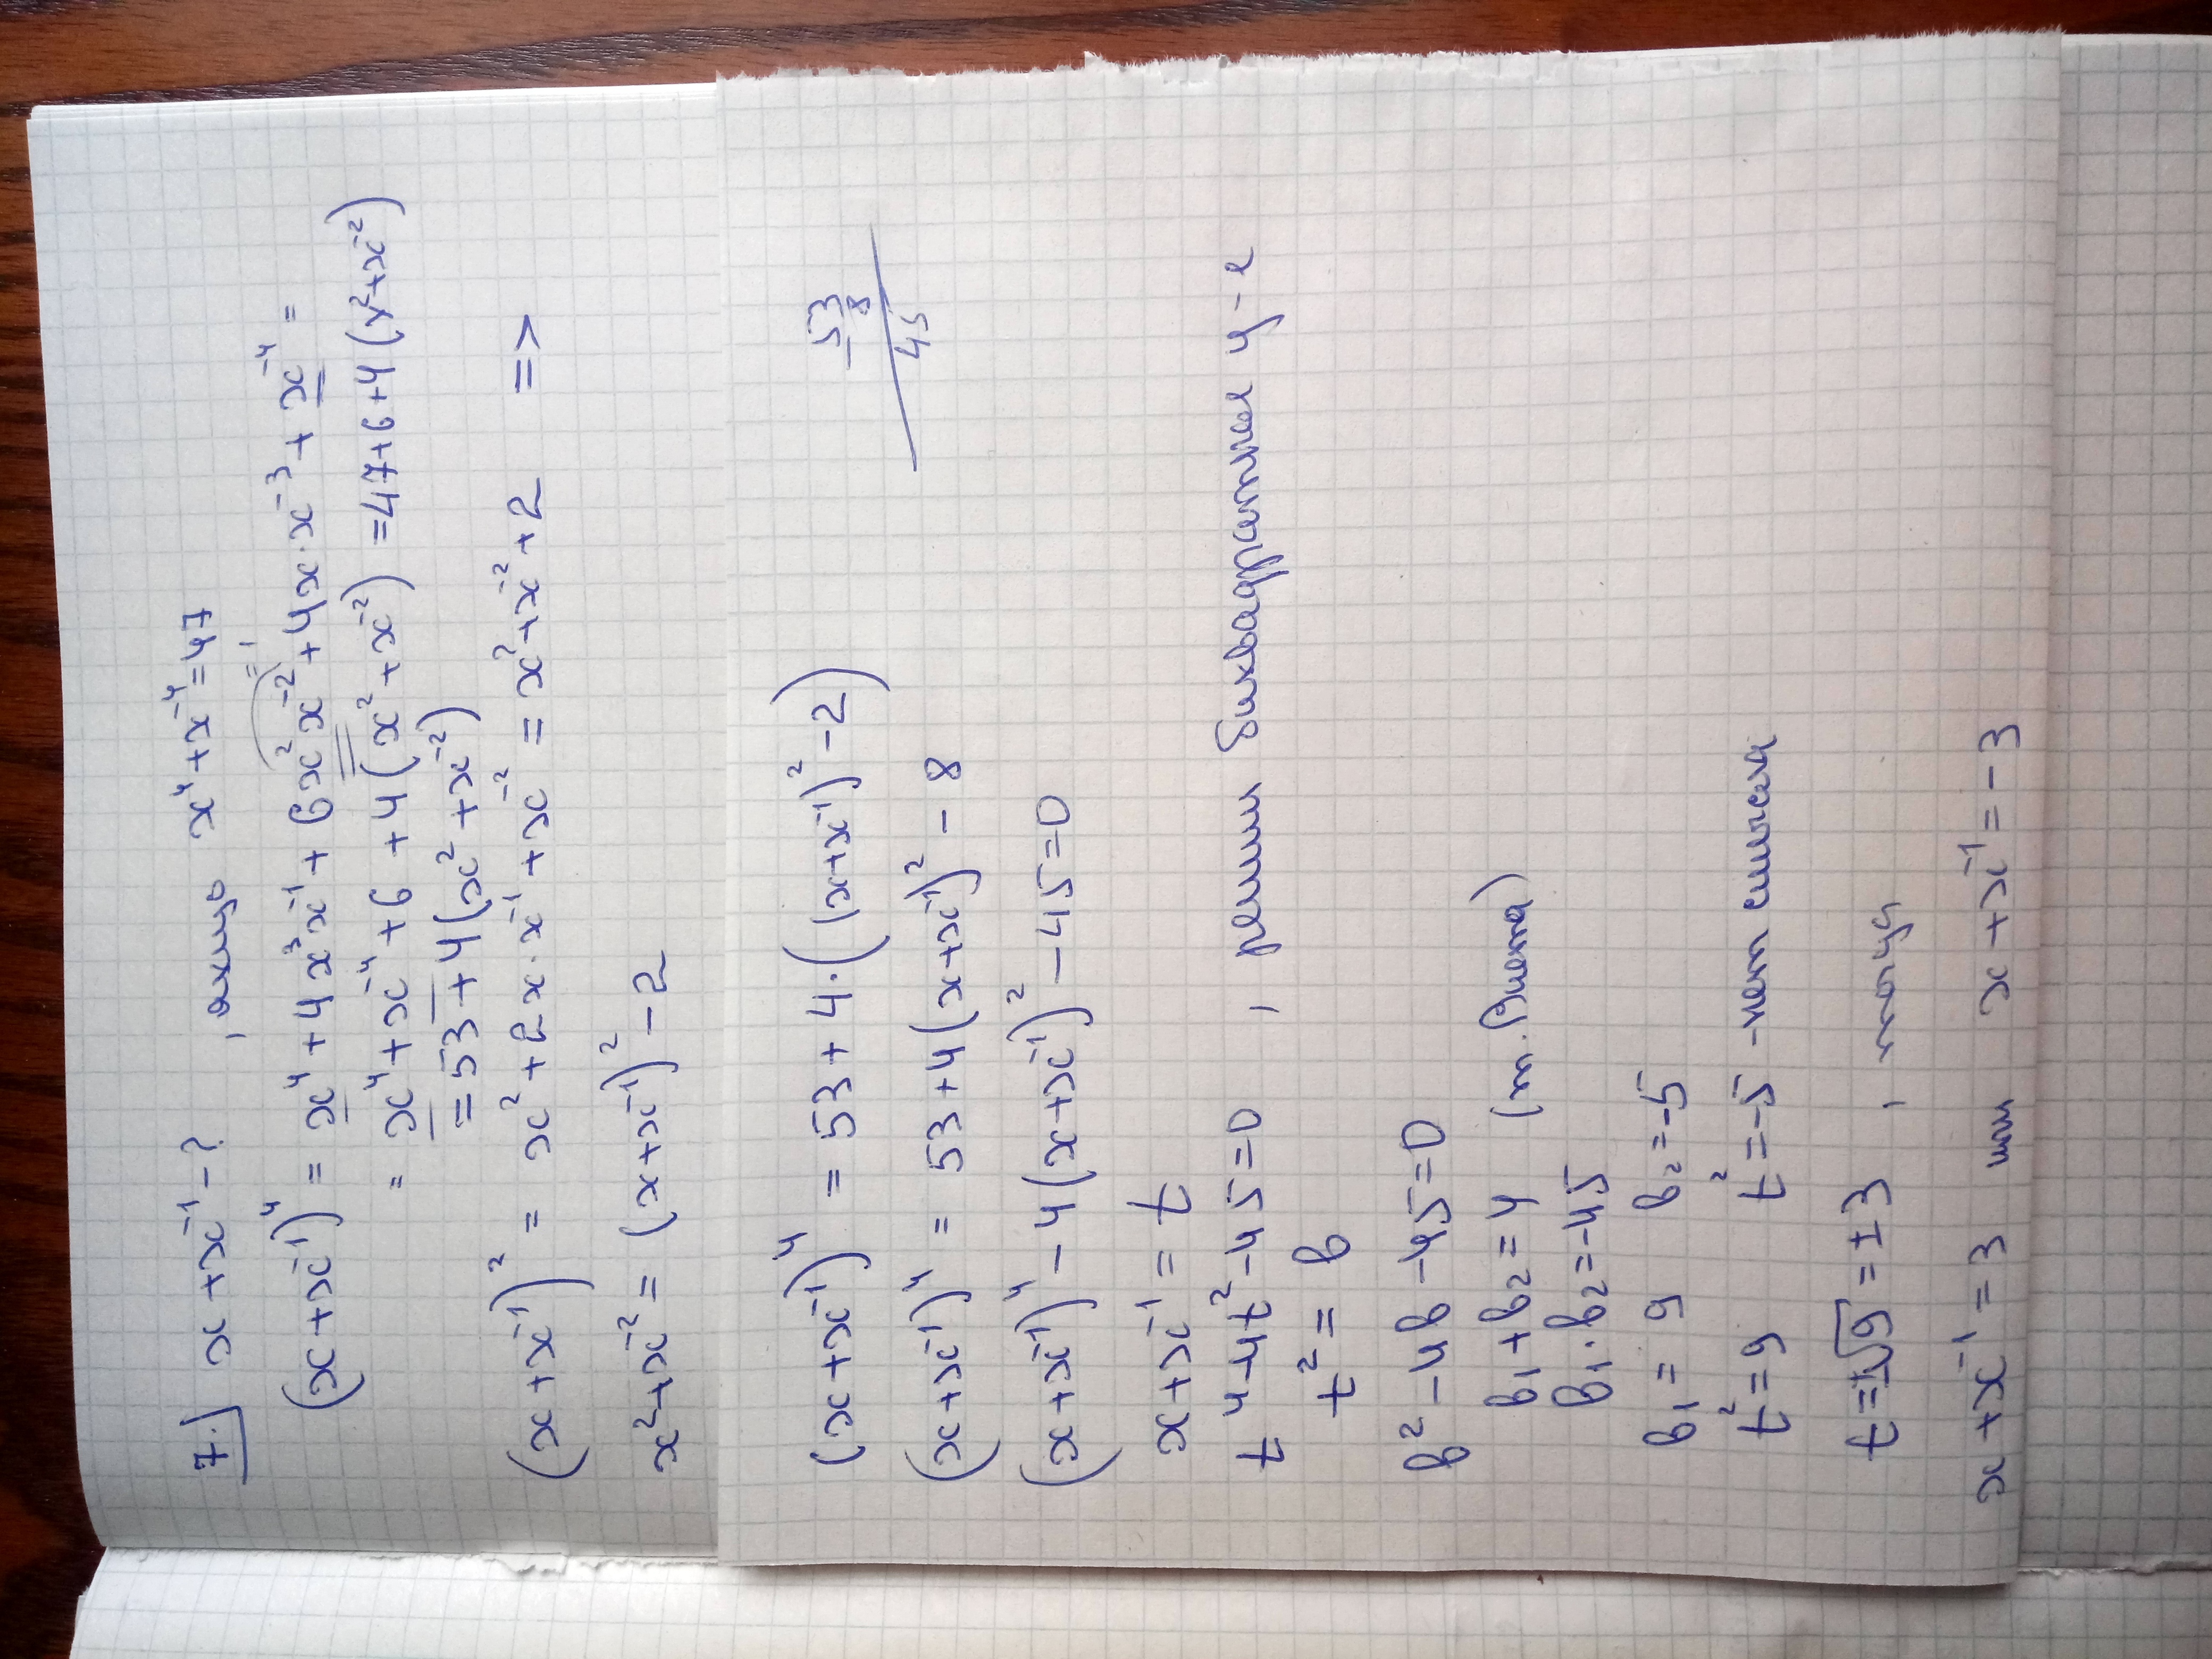 7. x + x⁻¹ - ? , якщо x⁴ + x⁻⁴ = 47
(x + x⁻¹)⁴ = x⁴ + 4x³x⁻¹ + 6x²x⁻² + 4x · x⁻³ + x⁻⁴ =
= 1
= x⁴ + x⁻⁴ + 6 + 4(x² + x⁻²) = 47 + 6 + 4(x² + x⁻²)
= 53 + 4(x² + x⁻²)
(x + x⁻¹)² = x² + 2x · x⁻¹ + x⁻² = x² + x⁻² + 2 =>
x² + x⁻² = (x + x⁻¹)² - 2
(x + x⁻¹)⁴ = 53 + 4 · ((x + x⁻¹)² - 2)
- 53
8
45
(x + x⁻¹)⁴ = 53 + 4(x + x⁻¹)² - 8
(x + x⁻¹)⁴ - 4(x + x⁻¹)² - 45 = 0
x + x⁻¹ = t
t⁴ - 4t² - 45 = 0 , решим биквадратное у-е
t² = b
b² - 4b - 45 = 0
b₁ + b₂ = 4 (т. Виета)
b₁ · b₂ = -45
b₁ = 9 b₂ = -5
t² = 9 t² = -5 - нет смысла
t = ±√9 = ±3 ,
x + x⁻¹ = 3 или x + x⁻¹ = -3